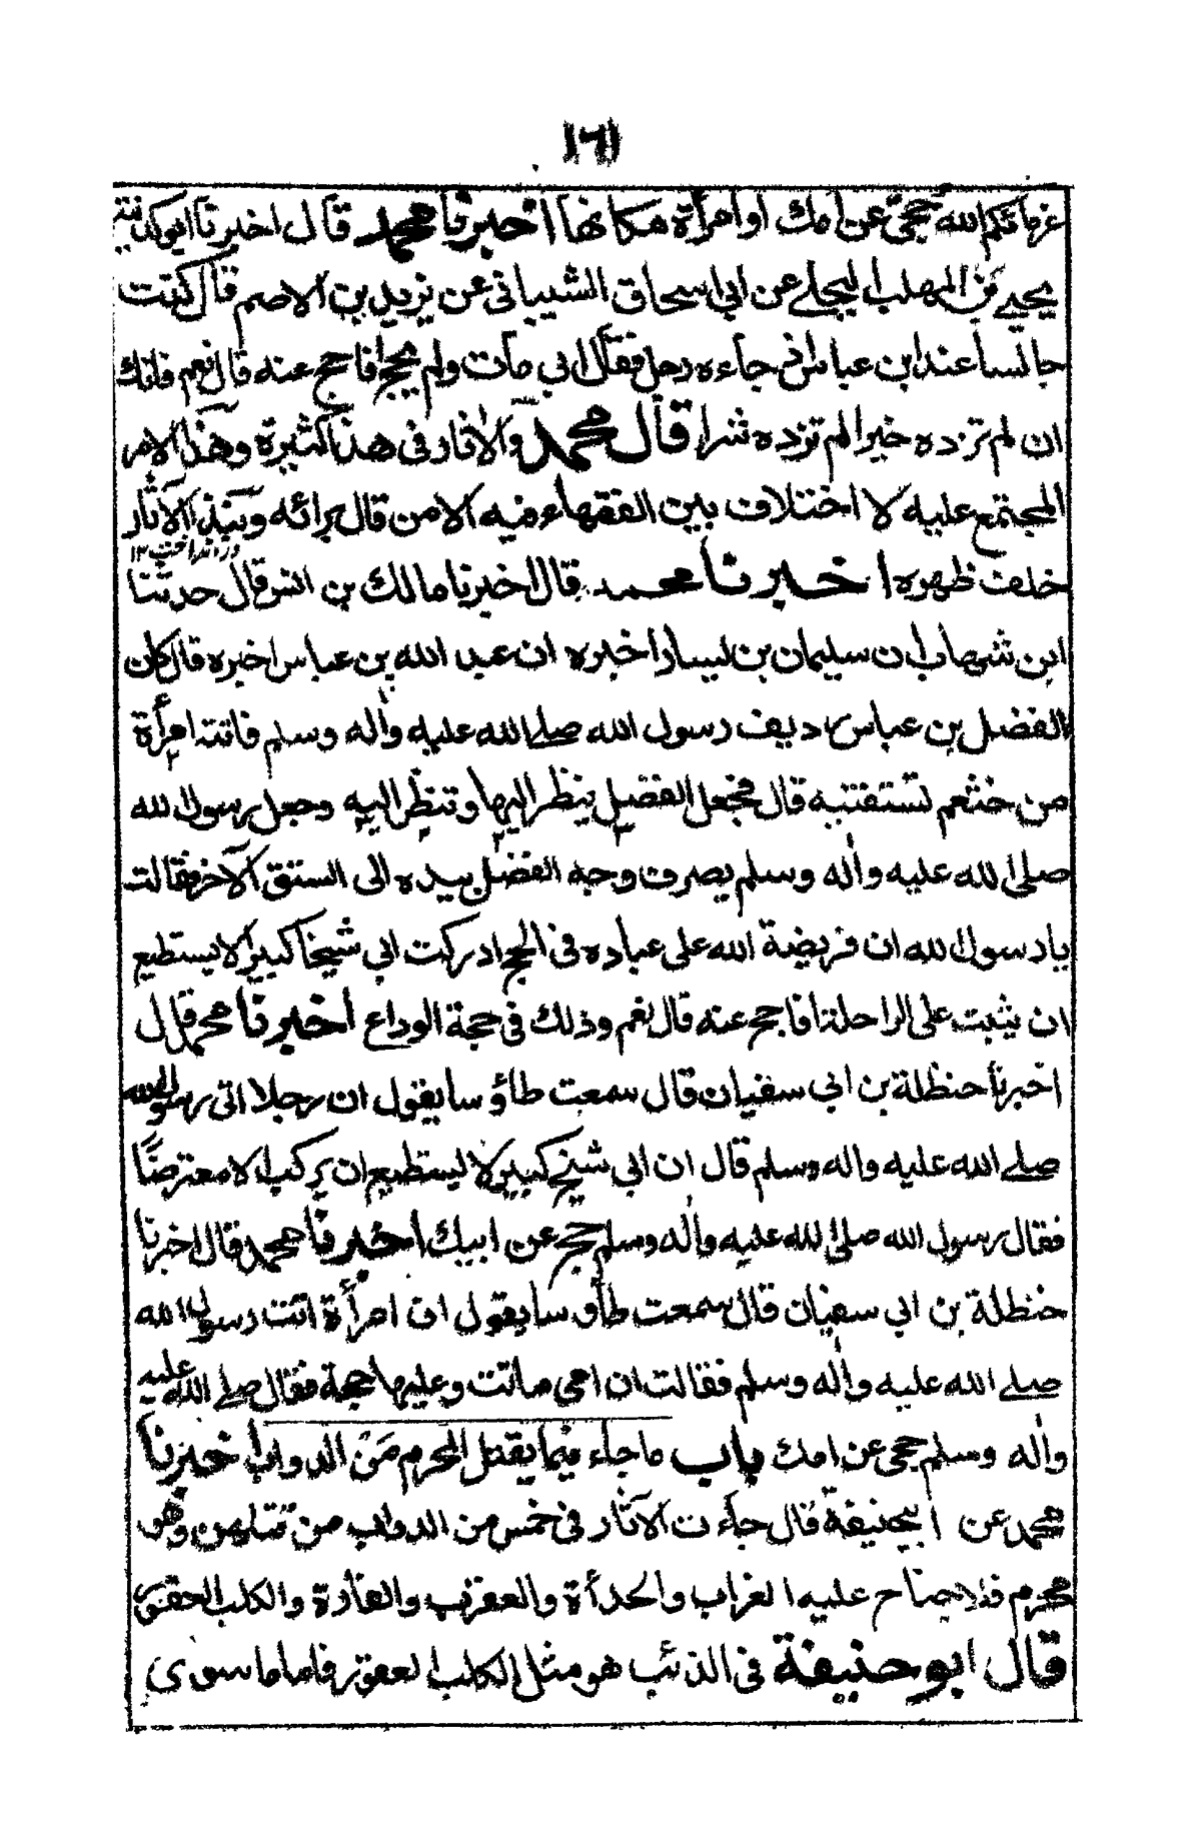 ١٦١
غرمائكم الله حجي عن امك او امرأة مكانها اخبرنا محمد قال اخبرنا ابو كدينة
يحيى بن المهلب البجلي عن ابي اسحاق الشيباني عن يزيد بن الاصم قال كنت
جالسا عند ابن عباس اذ جاءه رجل فقال ابي مات ولم يحج افاحج عنه قال نعم فانك
ان لم تزده خيرا لم تزده شرا قال محمد والآثار في هذا كثيرة وهذا الامر
المجتمع عليه لا اختلاف بين الفقهاء فيه الا من قال برائه وينبذ الآثار
خلف ظهره اخبرنا محمد قال اخبرنا مالك بن انس قال حدثنا
ابن شهاب ان سليمان بن يسار اخبره ان عبد الله بن عباس اخبره قال كان
الفضل بن عباس رديف رسول الله صلى الله عليه واله وسلم فاتته امرأة
من خثعم تستفتيه قال فجعل الفضل ينظر اليها وتنظر اليه وجعل رسول الله
صلى الله عليه واله وسلم يصرف وجه الفضل بيده الى الشق الآخر فقالت
يا رسول الله ان فريضة الله على عباده في الحج ادركت ابي شيخا كبيرا لا يستطيع
ان يثبت على الراحلة افاحج عنه قال نعم وذلك في حجة الوداع اخبرنا محمد قال
اخبرنا حنظلة بن ابي سفيان قال سمعت طاؤسا يقول ان رجلا اتى رسول الله
صلى الله عليه واله وسلم قال ان ابي شيخ كبير لا يستطيع ان يركب الا معترضًا
فقال رسول الله صلى الله عليه واله وسلم حج عن ابيك اخبرنا محمد قال اخبرنا
حنظلة بن ابي سفيان قال سمعت طاؤسا يقول ان امرأة اتت رسول الله
صلى الله عليه واله وسلم فقالت ان امي ماتت وعليها حجة فقال صلى الله عليه
واله وسلم حجي عن امك باب ما جاء فيما يقتل المحرم من الدواب اخبرنا
محمد عن ابي حنيفة قال جاءت الآثار في خمس من الدواب من قتلهن وهو
محرم فلا جناح عليه الغراب والحدأة والعقرب والفارة والكلب العقور
قال ابو حنيفة في الذئب هو مثل الكلب العقور فاما ما سوى